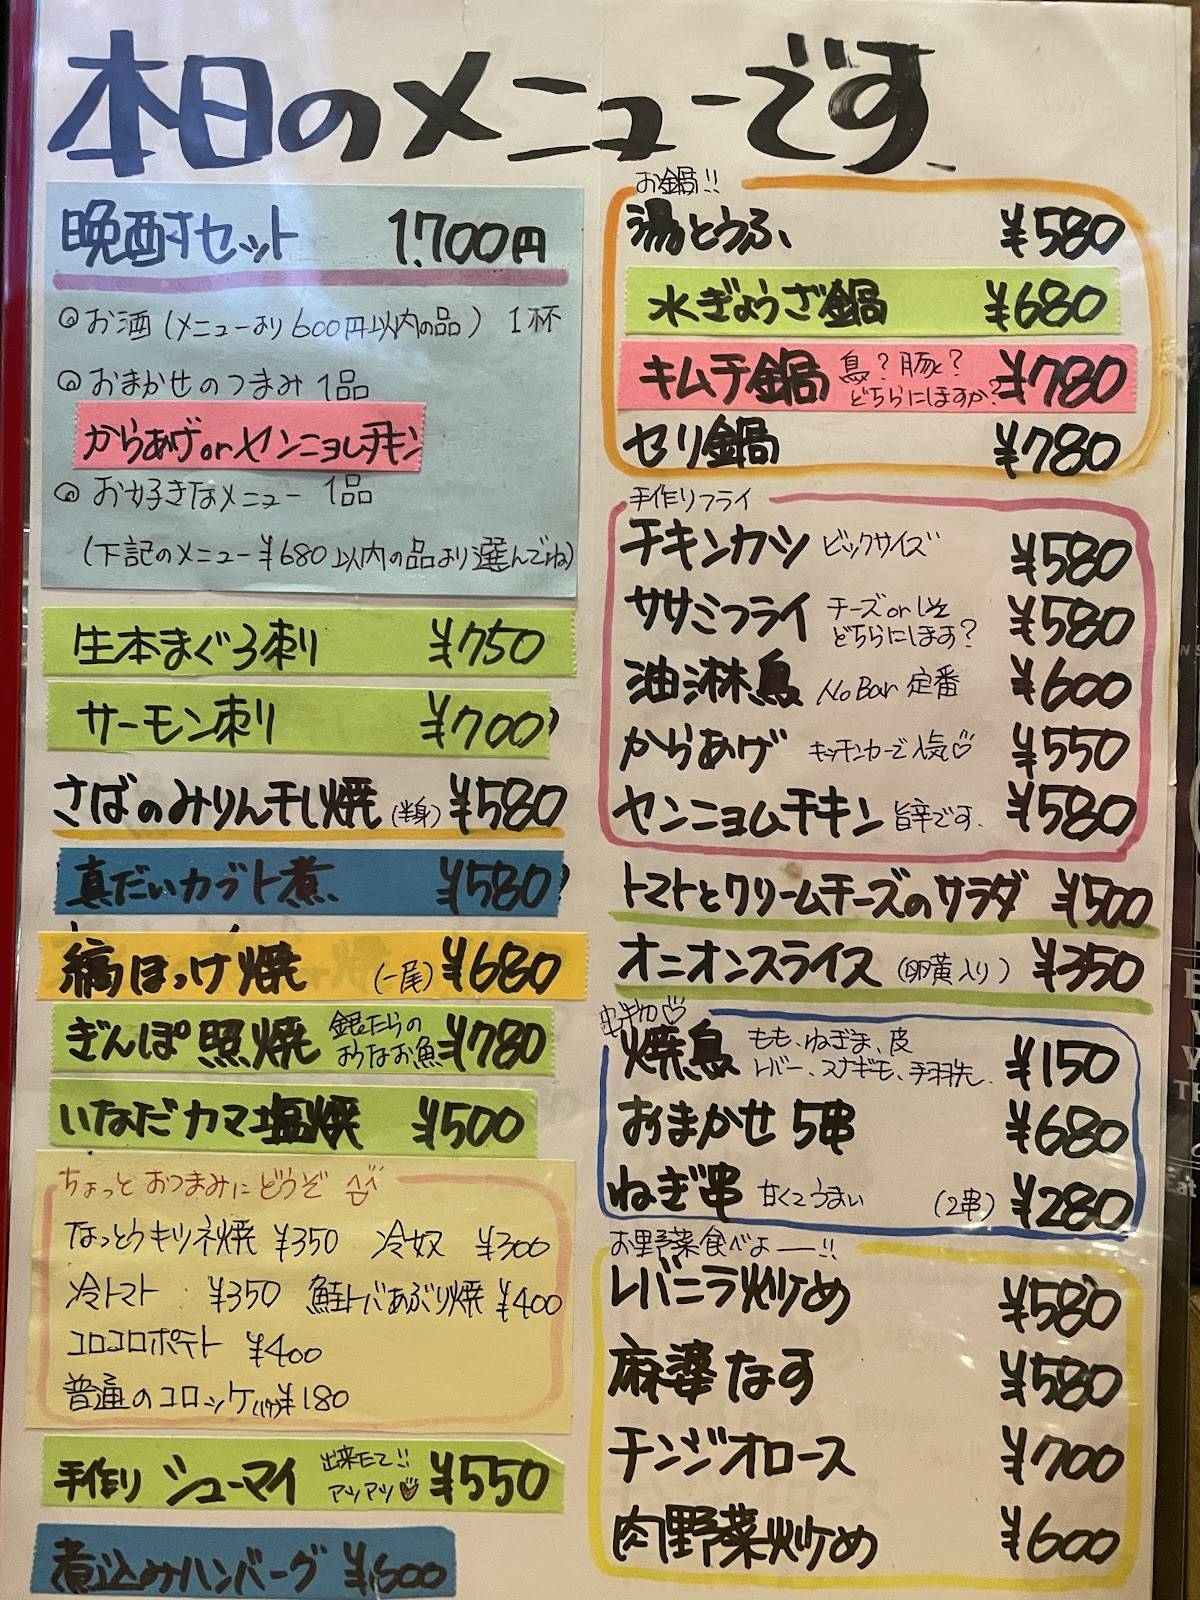 本日のメニューです
晩酌セット 1,700円
◎お酒(メニューより600円以内の品) 1杯
◎おまかせのつまみ 1品
からあげorヤンニョムチキン
◎お好きなメニュー 1品
(下記のメニュー¥680以内の品より選んでね)
生本まぐろ刺 ¥750
サーモン刺 ¥700
さばのみりん干し焼(半身) ¥580
真だいカブト煮 ¥580
縞ほっけ焼 (一尾) ¥680
ぎんぽ照焼 銀だらの ¥780
ようなお魚
いなだカマ塩焼 ¥500
ちょっとおつまみにどうぞ
なっとうキツネ焼 ¥350 冷奴 ¥300
冷トマト ¥350 鮭トバあぶり焼 ¥400
コロコロポテト ¥400
普通のコロッケ ¥180
手作りシューマイ 出来たて!! ¥550
アツアツ♡
煮込みハンバーグ ¥600
お鍋!!
湯とうふ ¥580
水ぎょうざ鍋 ¥680
キムチ鍋 鳥?豚? ¥780
どちらにしますか?
セリ鍋 ¥780
手作りフライ
チキンカツ ビックサイズ ¥580
ササミフライ チーズorしそ ¥580
どちらにします?
油淋鳥 No Bar 定番 ¥600
からあげ キッチンカーで人気♡ ¥550
ヤンニョムチキン 旨辛です. ¥580
トマトとクリームチーズのサラダ ¥500
オニオンスライス (卵黄入り) ¥350
串物♡
焼鳥 もも、ねぎま、皮 ¥150
レバー、スナギモ、手羽先
おまかせ 5串 ¥680
ねぎ串 甘くてうまい (2串) ¥280
お野菜食べよー!!
レバニラ炒め ¥580
麻婆なす ¥580
チンジオロース ¥700
肉野菜炒め ¥600